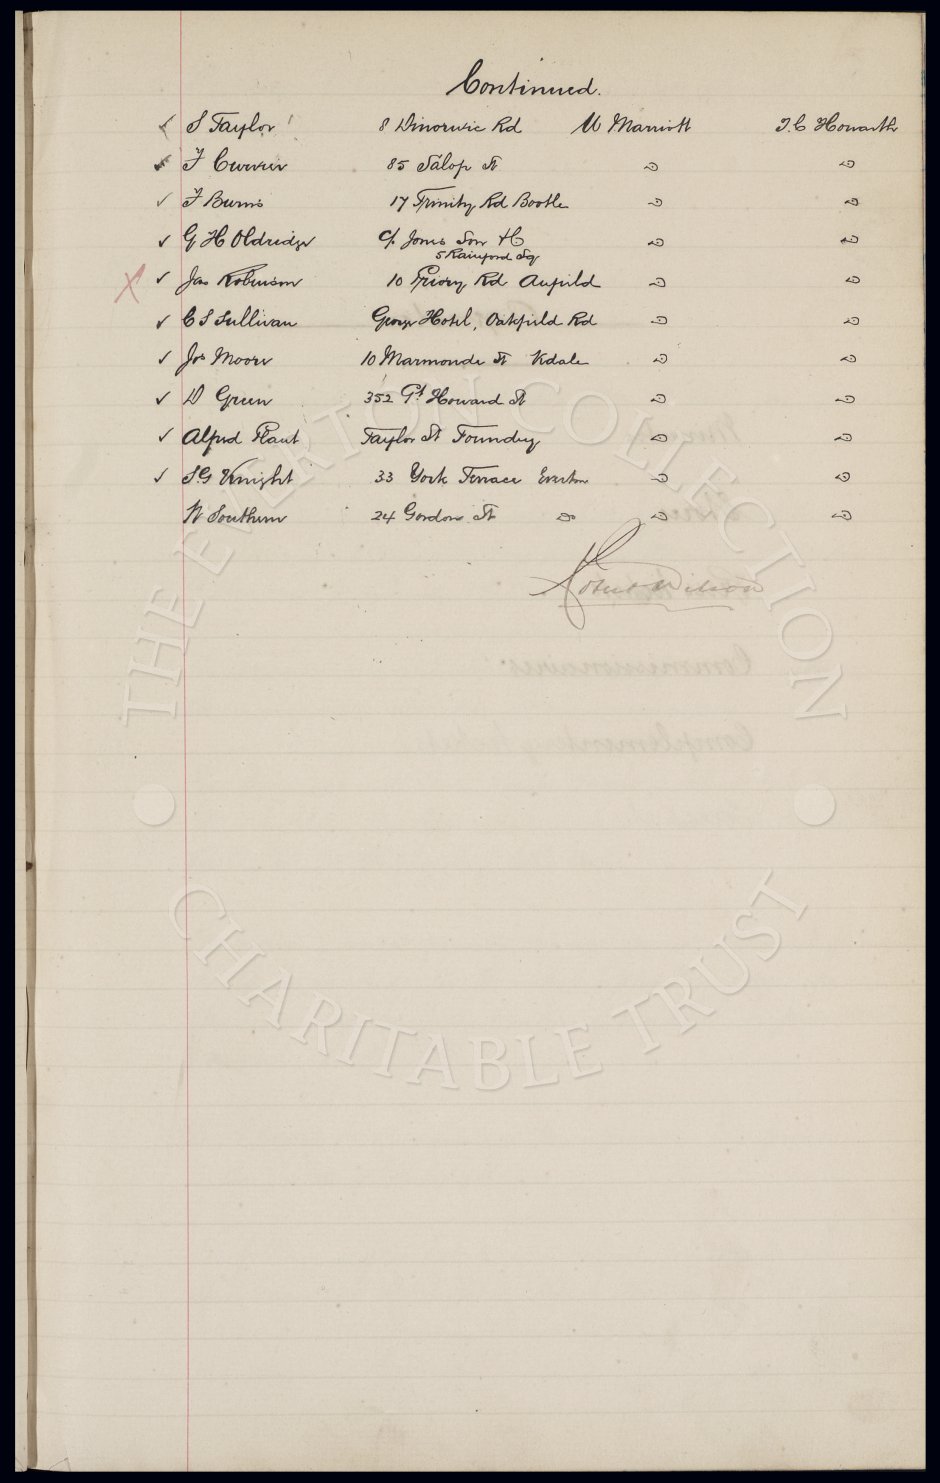 Continued.
✓ S Taylor 8 Dinorwic Rd W Marriott T.C Howarth
✓ F Currier 85 Salop St do do
✓ F Burns 17 Trinity Rd Bootle do do
✓ G H Oldridge c/o Jones Son & Co do do
5 Rainford Sq
X ✓ Jas Robinson 10 Priory Rd Anfield do do
✓ C S Sullivan George Hotel, Oakfield Rd do do
✓ Jos Moore 10 Marmonde St Kdale do do
✓ D Green 352 Gt Howard St do do
✓ Alfred Plant Taylor St Foundry do do
✓ S.G Knight 33 York Terrace Everton do do
W Southern 24 Gordon St do do do
Robert Wilson
THE EVERTON COLLECTION
CHARITABLE TRUST